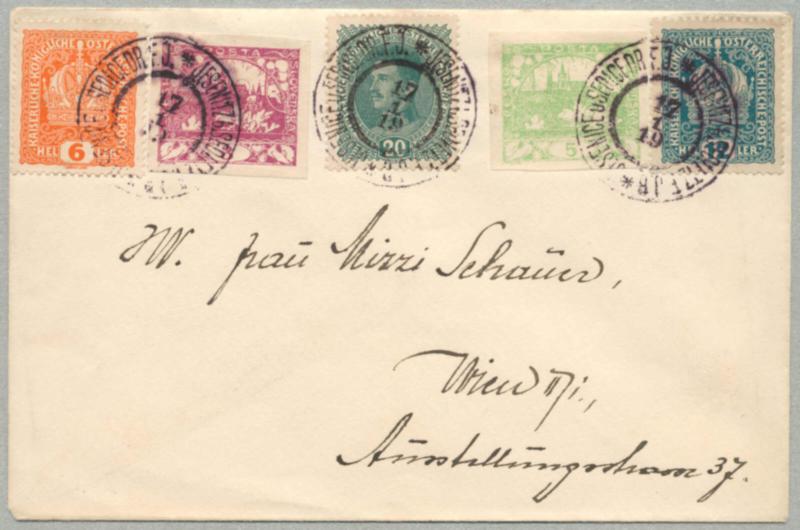 KAISERLICHE KÖNIGLICHE ÖSTERREICHISCHE POST
6
HELLER
POSTA
ČESKO-SLOVENSKÁ
20
POSTA
5
KAISERLICHE KÖNIGLICHE ÖSTERREICHISCHE POST
12
HELLER
17
1
19
17
1
19
17
1
19
JW. Frau Mizzi Schauer,
Wien II/1.,
Ausstellungsstrasse 37.